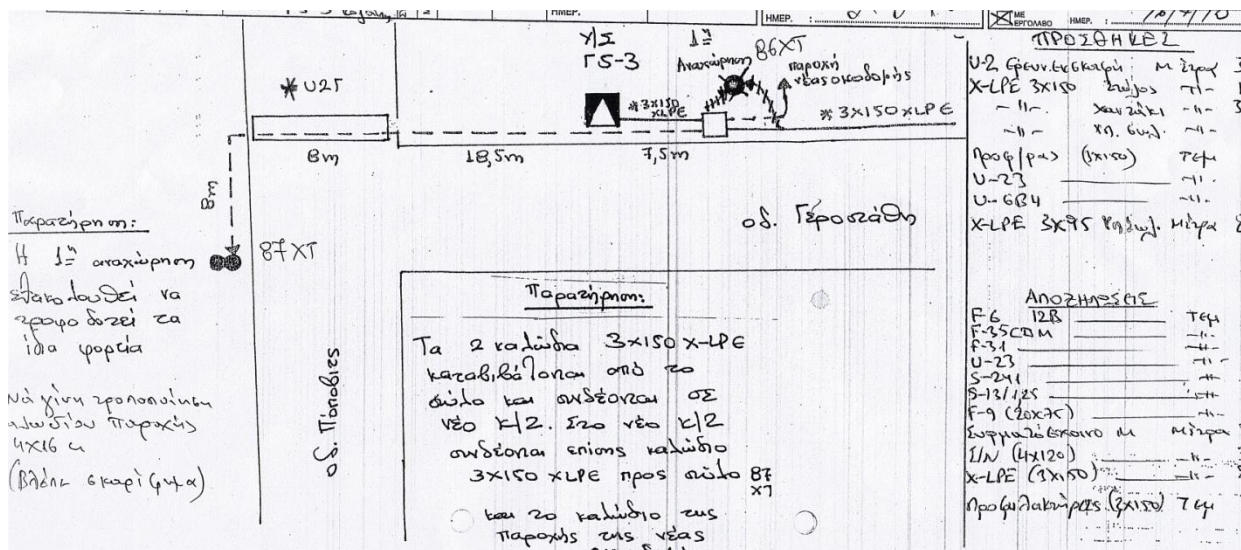 ΗΜΕΡ.
ΗΜΕΡ. :
ΜΕ ΕΡΓΟΛΑΒΟ ΗΜΕΡ. :
Υ/Σ
ΓS-3
1η
Αναχώρηση
86ΧΤ
παροχή
νέας οικοδομής
* U25
*3x150
XLPE
*3x150xLPE
8m
18,5m
7,5m
8m
οδ. Γέροστάθη
87ΧΤ
Παρατήρηση:
Η 1η αναχώρηση
να
τροφοδοτεί τα
ίδια φορτία
Νά γίνη τροποποίηση
Παροχής
4x16
(Βλέπε σκαρίφημα)
οδ.
Παρατήρηση:
Τα 2 καλώδια 3x150 X-LPE
καταβιβάζονται από το
στύλο και συνδέονται σε
νέο Κ/2. Στο νέο Κ/2
συνδέεται επίσης καλώδιο
3x150 XLPE προς στύλο 87
ΧΤ
και το καλώδιο της
παροχής της νέας
ΠΡΟΣΘΗΚΕΣ
U-2 Μέτρα
X-LPE 3x150 Στύλος -11-
-11- χαντάκι -11-
-11- -11-
(3x150) Τεμ
U-23 -11-
U-6B4 -11-
X-LPE 3x95 Μέτρα
ΑΠΟΞΗΛΩΣΕΙΣ
F-6 12B Τεμ
F-35CDM -11-
F-31 -11-
U-23 -11-
S-241 -11-
S-13/125 -11-
F-9 (20x75) -11-
Συρματόσχοινο Μ Μέτρα
Σ/Ν (4x120) -11-
X-LPE (3x150) -11-
Προφυλακτήρες (3x150) Τεμ